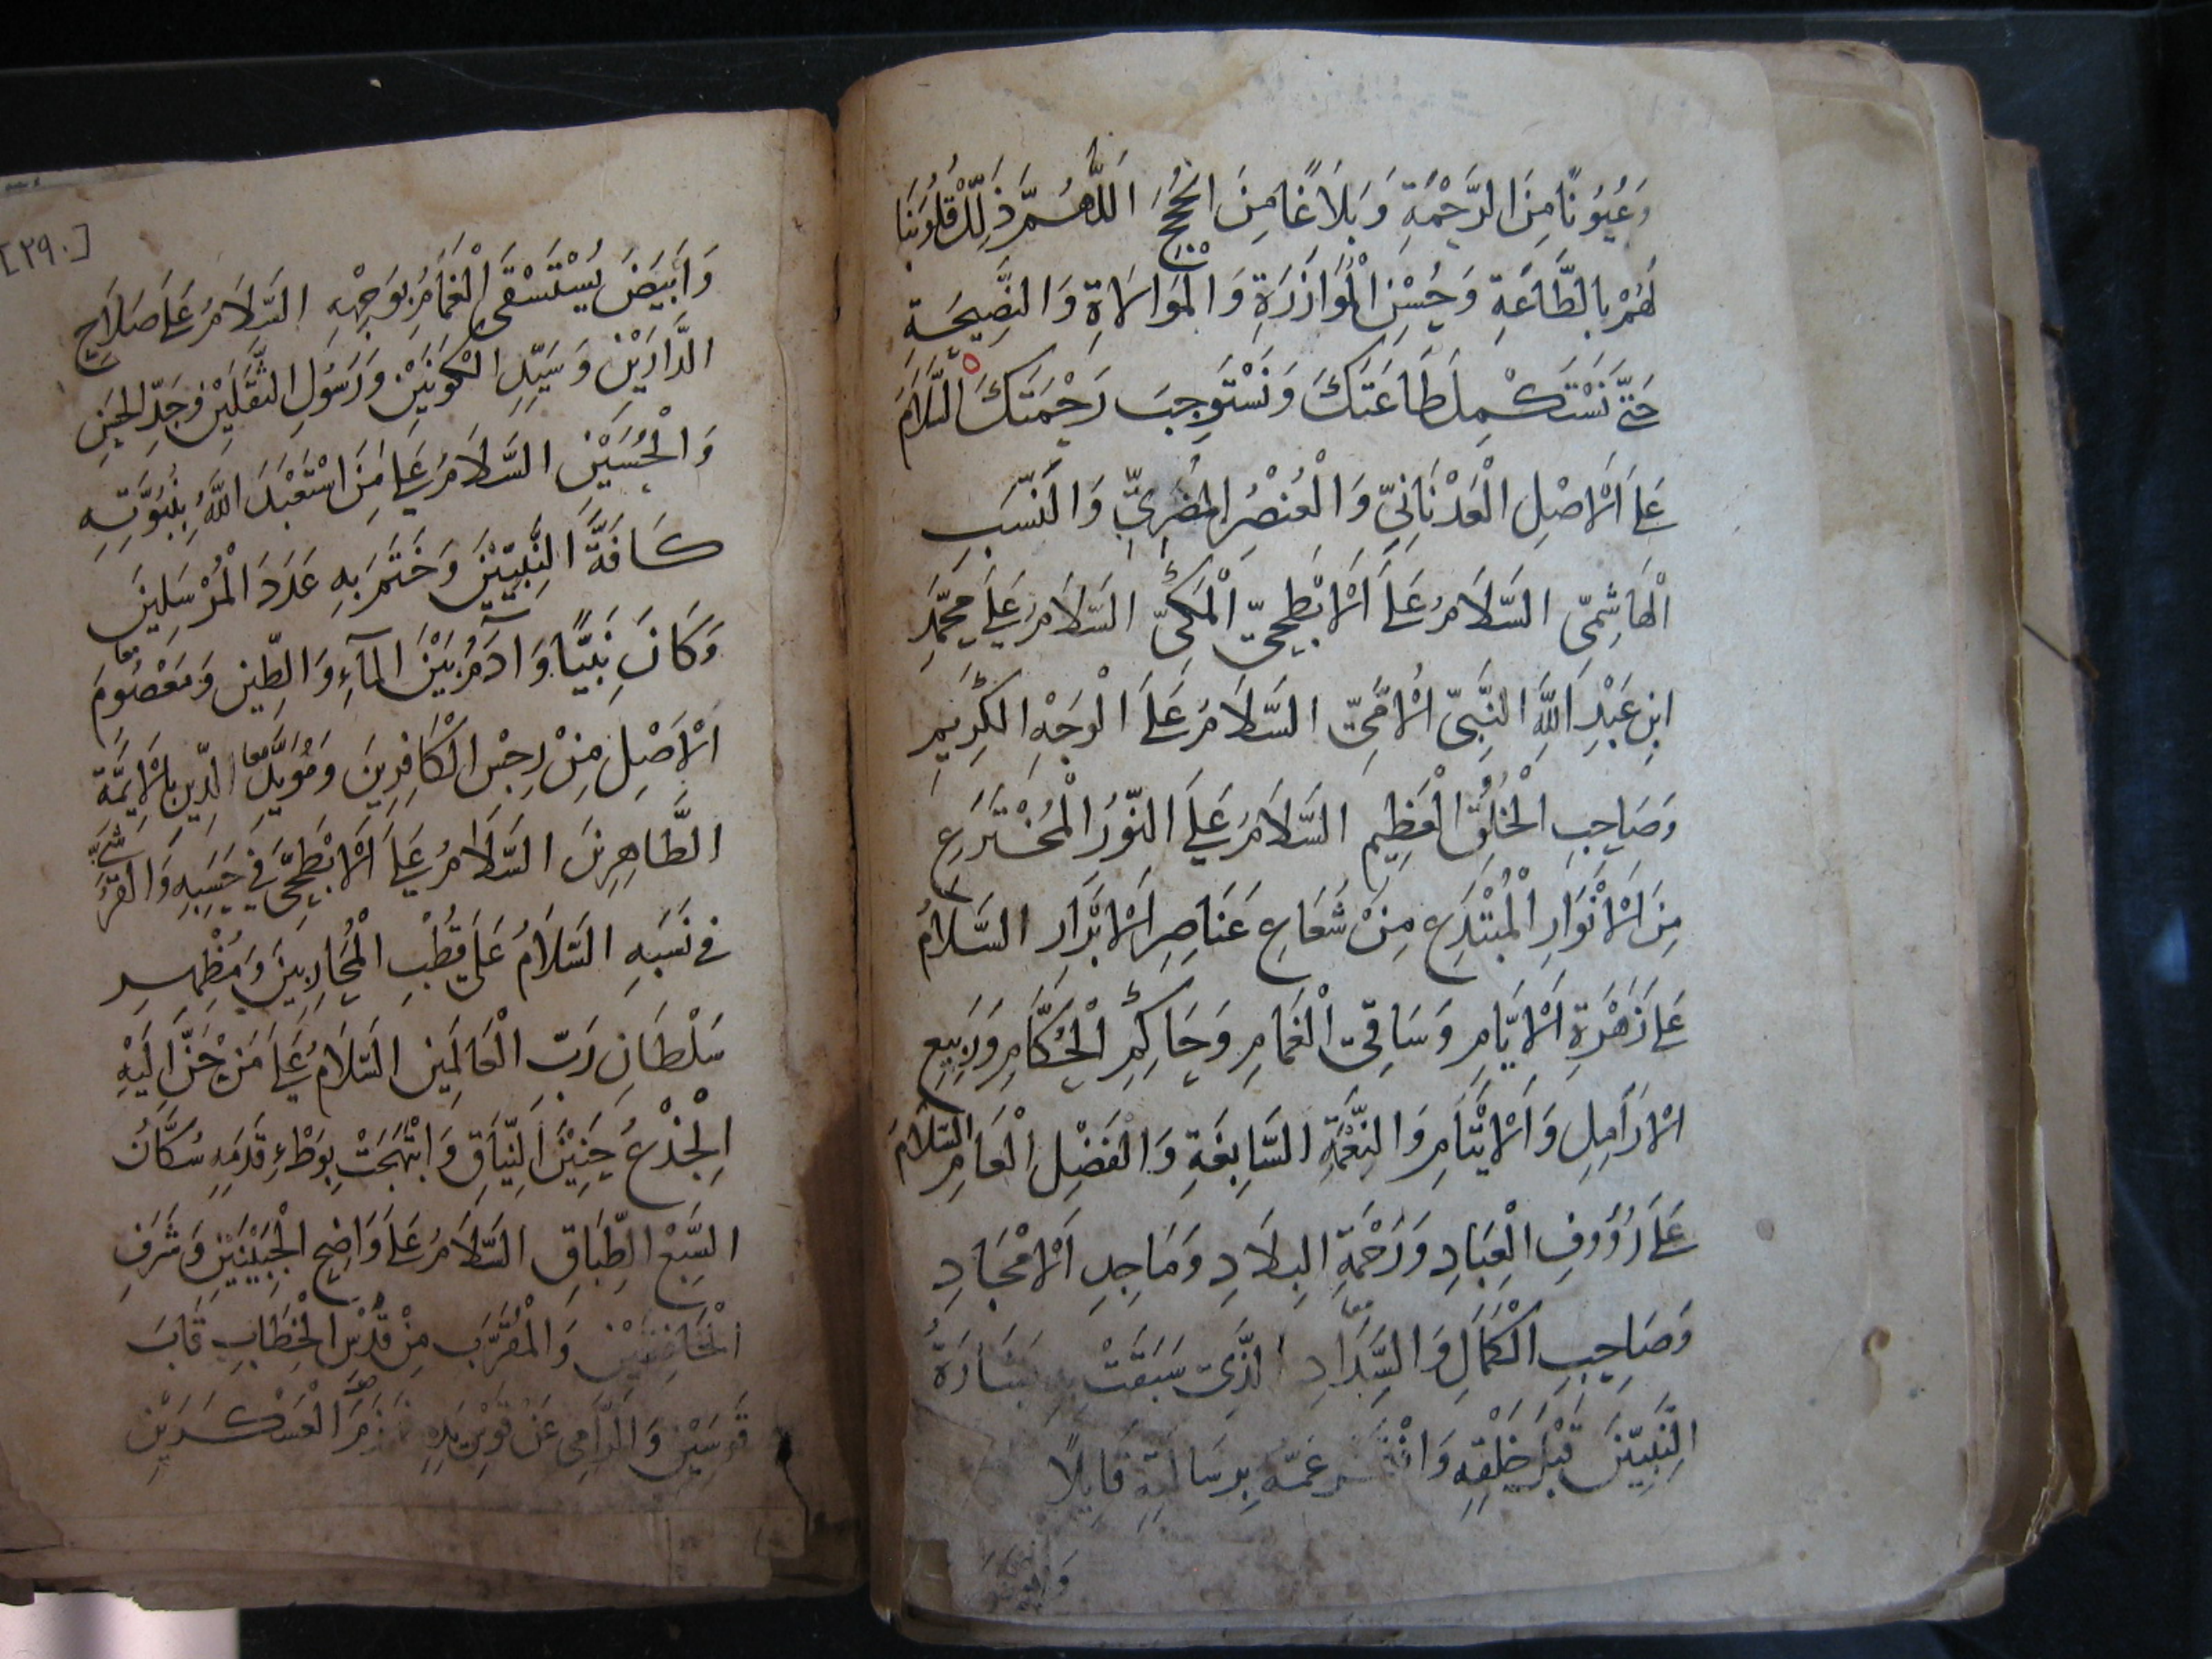 وَعُيُونًا مِنَ الرَّحْمَةِ وَبَلَاغًا مِنَ الْحُجَجِ اَللّٰهُمَّ ذَلِّلْ قُلُوبَنَا
لَهُمْ بِالطَّاعَةِ وَحُسْنِ الْمُوَازَرَةِ وَالْمُوَاسَاةِ وَالنَّصِيحَةِ
حَتّٰى نَسْتَكْمِلَ طَاعَتَكَ وَنَسْتَوْجِبَ رَحْمَتَكَ السَّلَامُ
عَلَى الْاَصْلِ الْعَدْنَانِيِّ وَالْعُنْصُرِ الْمُضَرِيِّ وَالنَّسَبِ
الْهَاشِمِيِّ السَّلَامُ عَلَى الْاَبْطَحِيِّ الْمَكِّيِّ السَّلَامُ عَلَى مُحَمَّدِ
ابْنِ عَبْدِ اللّٰهِ النَّبِيِّ الْاُمِّيِّ السَّلَامُ عَلَى الْوَجْهِ الْكَرِيمِ
وَصَاحِبِ الْخُلُقِ الْعَظِيمِ السَّلَامُ عَلَى النُّورِ الْمُخْتَرَعِ
مِنَ الْاَنْوَارِ الْمُبْتَدَعِ مِنْ شُعَاعِ عَنَاصِرِ الْاَبْرَارِ السَّلَامُ
عَلَى زَهْرَةِ الْاَيَّامِ وَسَاقِي الْغَمَامِ وَحَاكِمِ الْحُكَّامِ وَرَبِيعِ
الْاَرَامِلِ وَالْاَيْتَامِ وَالنِّعْمَةِ السَّابِغَةِ وَالْفَضْلِ الْعَامِّ السَّلَامُ
عَلَى رَؤُوفِ الْعِبَادِ وَرَحْمَةِ الْبِلَادِ وَمَاجِدِ الْاَمْجَادِ
وَصَاحِبِ الْكَمَالِ وَالسَّدَادِ الَّذِي سَبَقَتْ بِشَارَةُ
النَّبِيِّينَ قَبْلَ خَلْقِهِ عَمُّهُ بِرِسَالَتِهِ قَايِلًا
[٢٩٠]
وَاَبْيَضَ يُسْتَسْقَى الْغَمَامُ بِوَجْهِهِ السَّلَامُ عَلَى صَلَاحِ
الدَّارَيْنِ وَسَيِّدِ الْكَوْنَيْنِ وَرَسُولِ الثَّقَلَيْنِ وَجَدِّ الْحَسَنِ
وَالْحُسَيْنِ السَّلَامُ عَلَى مَنِ اسْتَعْبَدَ اللّٰهُ بِنُبُوَّتِهِ
كَافَّةَ النَّبِيِّينَ وَخَتَمَ بِهِ عَدَدَ الْمُرْسَلِينَ
وَكَانَ نَبِيًّا وَآدَمُ بَيْنَ الْمَآءِ وَالطِّينِ وَمَعْصُومَ
الْاَصْلِ مِنْ رِجْسِ الْكَافِرِينَ وَمُؤَيِّدَ الدِّينِ بِالْاَيِمَّةِ
الطَّاهِرِينَ السَّلَامُ عَلَى الْاَبْطَحِيِّ فِي حَسَبِهِ وَالْقُرَشِيِّ
فِي نَسَبِهِ السَّلَامُ عَلَى قُطْبِ الْمُحَارِبِينَ وَمُظْهِرِ
سُلْطَانِ رَبِّ الْعَالَمِينَ السَّلَامُ عَلَى مَنْ حَنَّ اِلَيْهِ
الْجِذْعُ حَنِينَ النِّيَاقِ وَابْتَهَجَتْ بِوَطْءِ قَدَمِهِ سُكَّانُ
السَّبْعِ الطِّبَاقِ السَّلَامُ عَلَى وَاضِحِ الْجَبِينَيْنِ وَشَرَفِ
الْخَافِقَيْنِ وَالْمُقَرَّبِ مِنْ قُدْسِ الْخِطَابِ قَابَ
قَوْسَيْنِ وَالرَّامِي عَنْ قَوْسِ يَدِهِ الْعَسْكَرَيْنِ